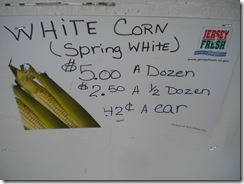 WHITE CORN
(Spring WHITE)
JERSEY
FRESH
$5.00 A Dozen
$2.50 A ½ Dozen
42¢ A ear